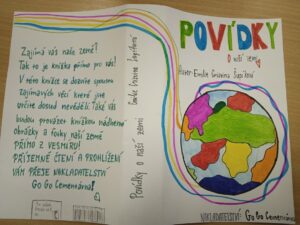 Zajímá vás naše země?
Tak to je knížka přímo pro vás!
V této knížce se dozvíte spoustu
zajímavých věcí které jste
určitě dosud nevěděli. Také vás
budou provázet knížkou nádherné
obrázky a fotky naší země
PŘÍMO Z VESMÍRU!
PŘÍJEMNÉ ČTENÍ A PROHLÍŽENÍ
VÁM PŘEJE NAKLADATELSTVÍ
Go Go Cementárna!
Povídky o naší zemi
Emílie
POVÍDKY
O naší zemi
Autor: Emílie
NAKLADATELSTVÍ: Go Go Cementárna!